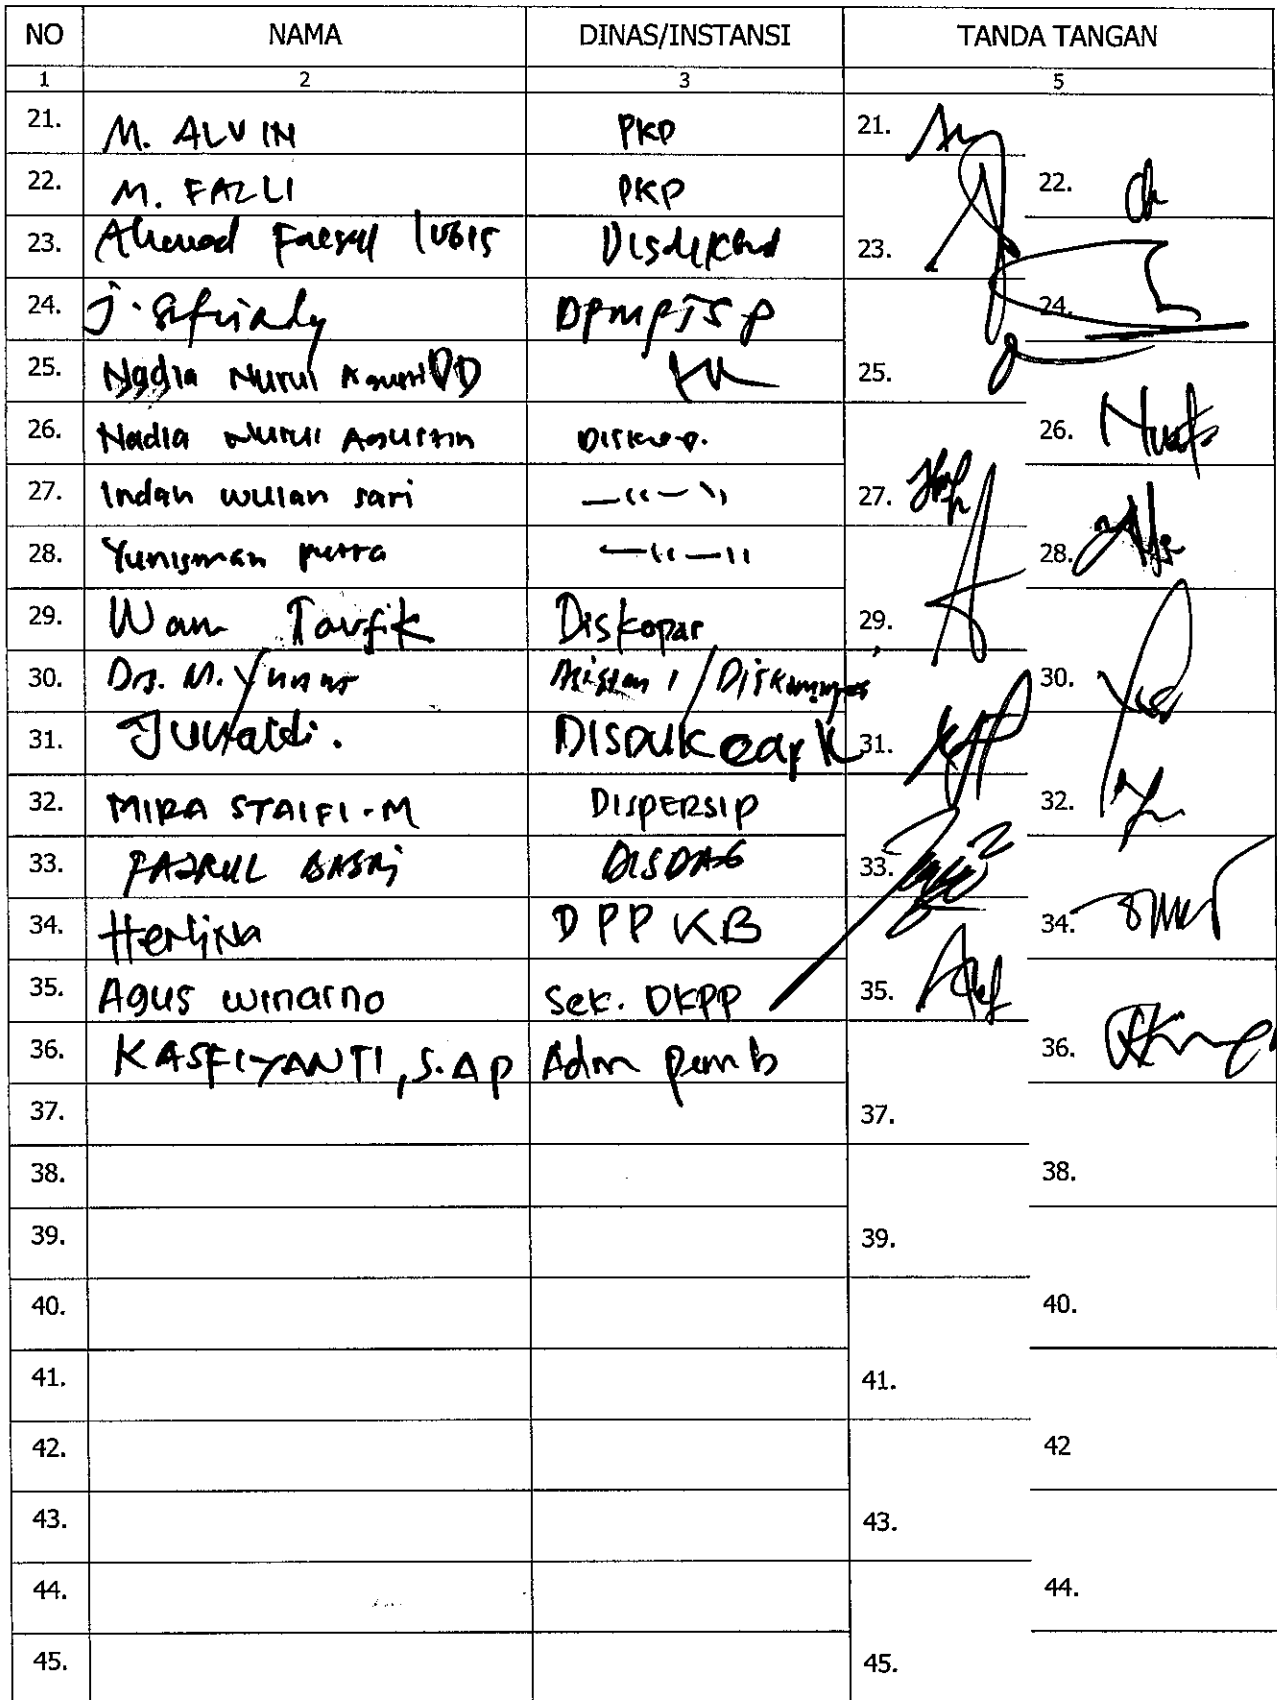 NO NAMA DINAS/INSTANSI TANDA TANGAN
1 2 3 5
21. M. ALVIN PKP 21.
22. M. FAZLI PKP 22.
23. Ahmad Faesal lubis 23.
24. DPMPTSP 24.
25. Nadia Nurul 25.
26. Nadia Nurul Agustin 26.
27. Indah wulan sari —"—" 27.
28. Yunisman putra —"—" 28.
29. Wan Taufik Diskopar 29.
30. Drs. M. Yunus Asisten 1 / 30.
31. Junaidi. DISDUKcapil 31.
32. MIRA STAIFI.M DISPERSIP 32.
33. FAJRUL BASRi DISDAG 33.
34. Herlina DPPKB 34.
35. Agus winarno Sek. DKPP 35.
36. KASFIYANTI, S.AP Adm pemb 36.
37. 37.
38. 38.
39. 39.
40. 40.
41. 41.
42. 42
43. 43.
44. 44.
45. 45.